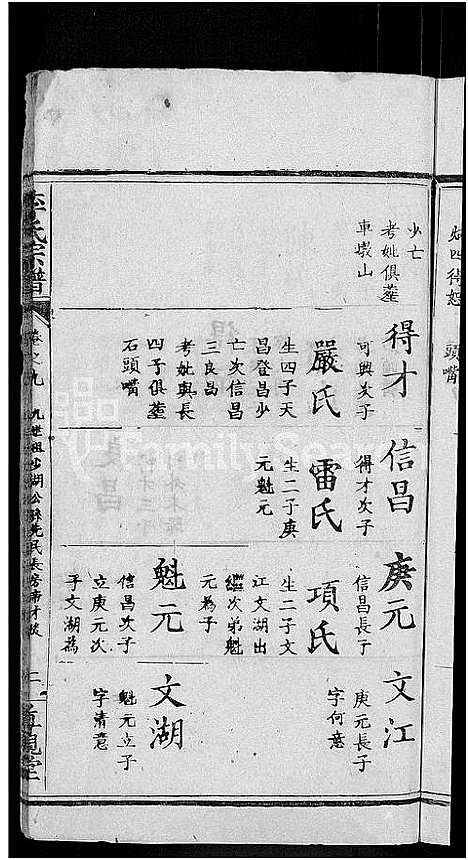 少亡
考妣俱塟
車墩山
得才
可興次子
嚴氏
生四子天
昌登昌少
亡次信昌
三良昌
考妣與長
四子俱塟
石頭嘴
信昌
得才次子
雷氏
生二子庚
元魁元
庚元
信昌長子
項氏
生二子文
江文湖出
繼次弟魁
元為子
魁元
信昌次子
立庚元次
子文湖為
文江
庚元長子
字何意
文湖
魁元立子
字清意
李氏宗譜
卷之九
九世祖少湖公
二
頭嘴
FamilySearch